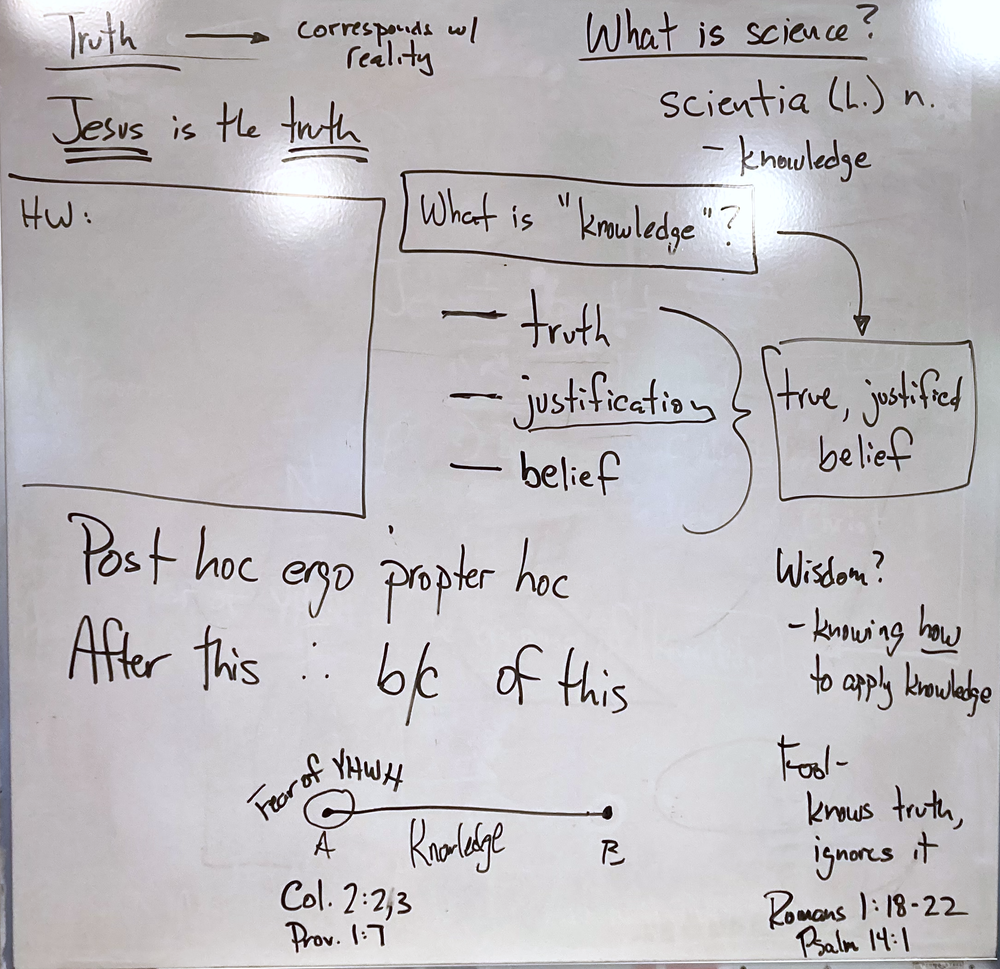 Truth → corresponds w/
reality
Jesus is the truth
What is science?
scientia (L.) n.
- knowledge
HW:
What is "knowledge"?
— truth
— justification
— belief
true, justified
belief
Post hoc ergo propter hoc
After this ∴ b/c of this
Wisdom?
- knowing how
to apply knowledge
Fear of YHWH
A Knowledge B
Col. 2:2,3
Prov. 1:7
Fool-
knows truth,
ignores it
Romans 1:18-22
Psalm 14:1